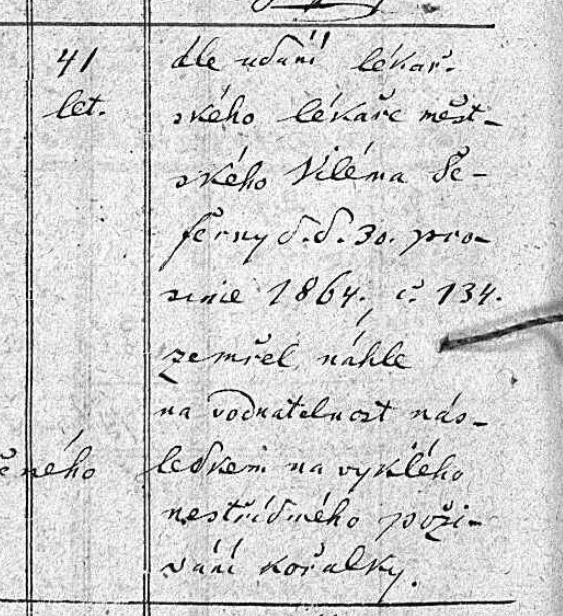 41 dle udání lékař-
let. ského lékaře měst-
ského Viléma Še-
ferny d.d. 30. pro-
since 1864, č. 134.
zemřel náhle
na vodnatelnost nás-
ného ledkem navyklého
nestřídmého poží-
vání kořalky.